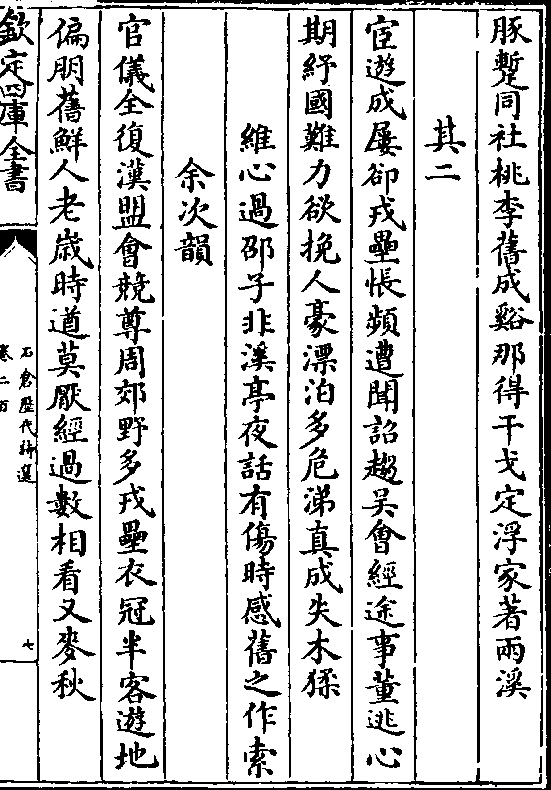 豚蹔同社桃李舊成谿那得干戈定浮家著兩溪
其二
宦遊成屢卻戎壘悵頻遭聞詔趨吴會經途事董逃心
期紓國難力欲挽人豪漂泊多危涕真成失木猱
維心過邵子非溪亭夜話有傷時感舊之作索
余次韻
官儀全復漢盟會競尊周郊野多戎壘衣冠半客遊地
偏朋舊鮮人老歲時遒莫厭經過數相看又麥秋
欽定四庫全書
石倉歷代詩選
卷二百
七